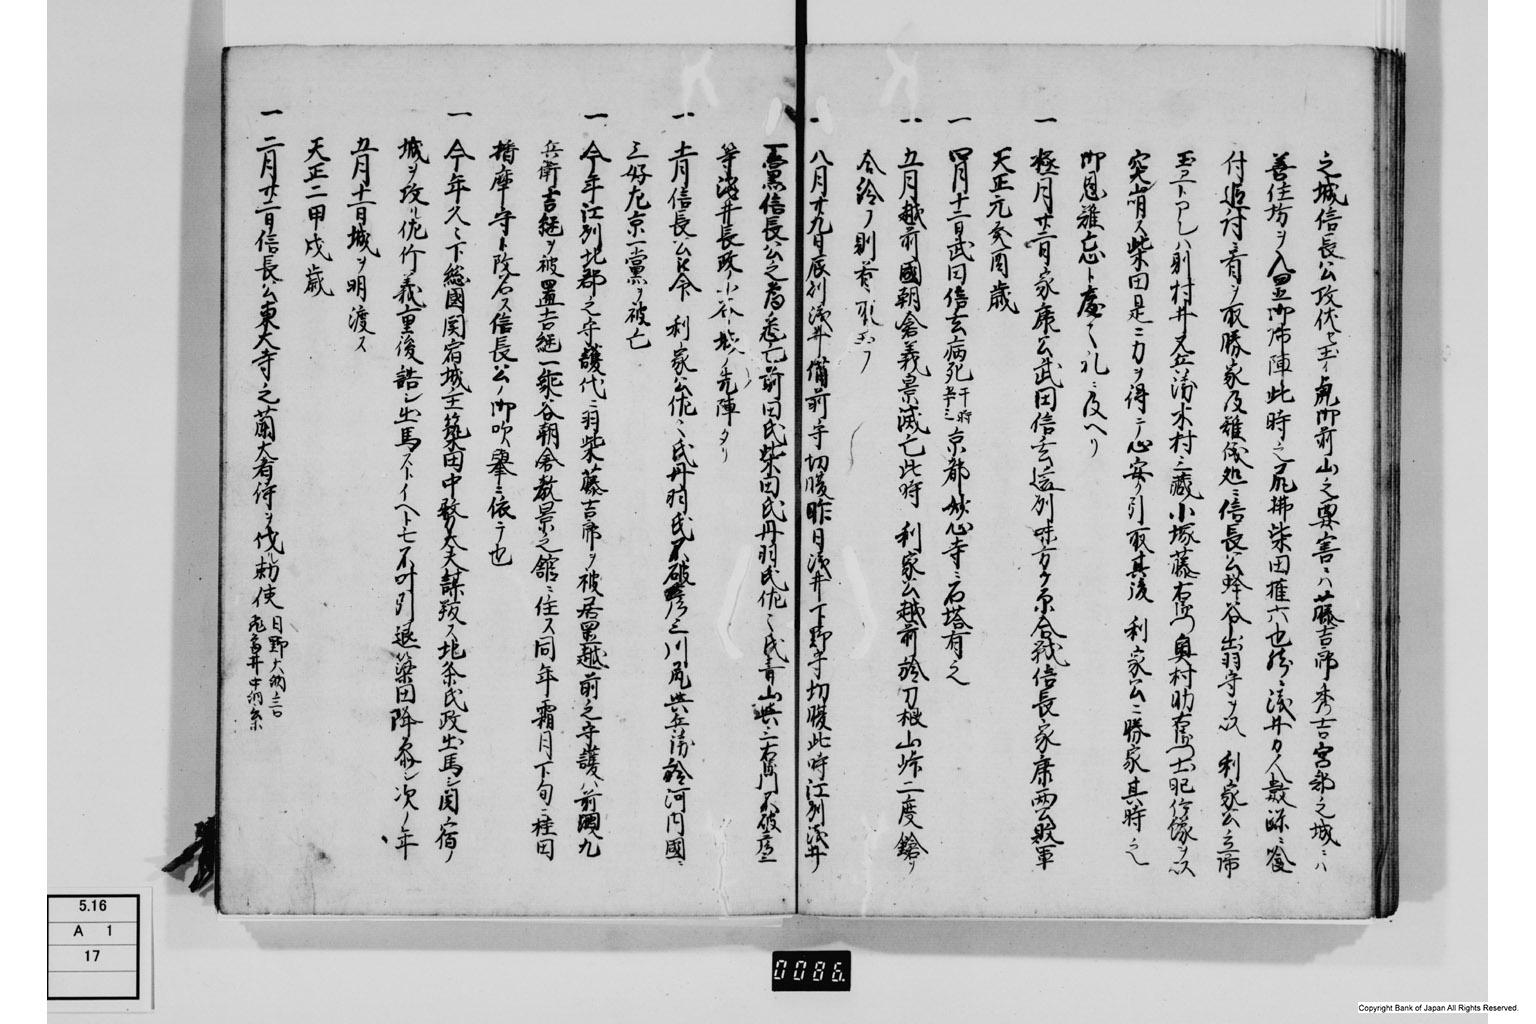 之城信長公攻伏セ玉イ虎御前山之要害ニハ藤吉郎秀吉宮部之城ニハ
善住坊ヲ入置御帰陣此時之尻拂柴田権六也然ニ浅井カ人数跡ニ喰
付追討ニ首ヲ取勝家及難儀処ニ信長公蜂谷出羽守ヲ以 利家公立帰
玉ヱトアレハ則村井又兵衛木村三蔵小塚藤右衛門奥村助右衛門土肥伊豫ヲ以
突崩ス柴田是ニ力ヲ得テ心安ク引取其後 利家公ニ勝家其時之
御恩難忘ト慶テ礼ニ及ヘリ
一 極月廿二日家康公武田信玄遠刕味方ケ原合戦信長家康両公敗軍
天正元癸酉歳
一 四月十二日武田信玄病死干時五十三京都妙心寺ニ石塔有之
一 五月越前國朝倉義景滅亡此時 利家公越前於刀根山峠二度鎗ヲ
合給フ則首ヲ取玉フ
一 八月廿九日辰刻浅井備前守切腹昨日浅井下野守切腹此時江刕浅井ノ
一黨信長公之為ニ悉亡前田氏柴田氏丹羽氏佐々氏青山與三右衛門不破彦三
等浅井長政ノ小谷ノ城ノ先陣タリ
一 十一月信長公ニ令 利家公佐々氏丹羽氏不破彦三川尻與兵衛於河内國ニ
三好左京一黨ヲ被亡
一 今年江刕北郡之守護代ニ羽柴藤吉郎ヲ被居置越前之守護ハ前関九
兵衛吉継ヲ被置吉継一乗谷朝倉教景之舘ニ住ス同年霜月下旬ニ桂田
播磨守ト改名ス信長公ノ御吹舉ニ依テ也
一 今年久々下総國関宿城主簗田中務太夫謀叛ス北条氏政出馬シ関宿ノ
城ヲ攻ル佐竹義重後詰シ出馬ストイヘトモ不叶引退簗田降参シ次ノ年
五月十一日城ヲ明渡ス
天正二甲戌歳
一 三月廿二日信長公東大寺之蘭奢待ヲ伐ル勅使日野大納言
飛鳥井中納言
5.16
A 1
17
0086.
Copyright Bank of Japan All Rights Reserved.